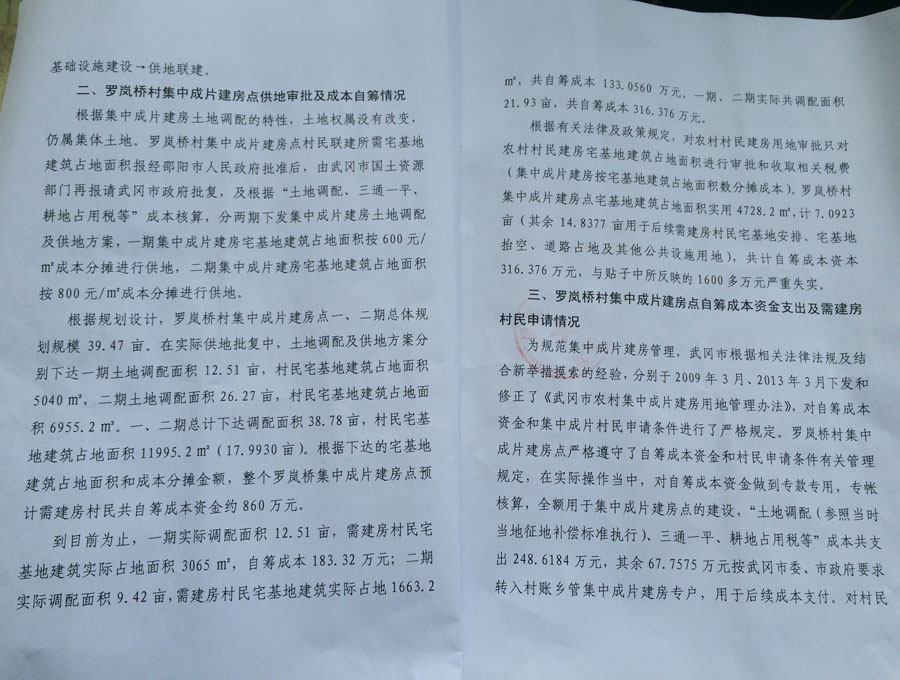 基础设施建设→供地联建。
二、罗岚桥村集中成片建房点供地审批及成本自筹情况
根据集中成片建房土地调配的特性，土地权属没有改变，
仍属集体土地。罗岚桥村集中成片建房点村民联建所需宅基地
建筑占地面积报经邵阳市人民政府批准后，由武冈市国土资源
部门再报请武冈市政府批复，及根据“土地调配、三通一平、
耕地占用税等”成本核算，分两期下发集中成片建房土地调配
及供地方案，一期集中成片建房宅基地建筑占地面积按600元/
㎡成本分摊进行供地，二期集中成片建房宅基地建筑占地面积
按800元/㎡成本分摊进行供地。
根据规划设计，罗岚桥村集中成片建房点一、二期总体规
划规模 39.47 亩。在实际供地批复中，土地调配及供地方案分
别下达一期土地调配面积 12.51 亩，村民宅基地建筑占地面积
5040㎡，二期土地调配面积 26.27 亩，村民宅基地建筑占地面
积 6955.2㎡。一、二期总计下达调配面积 38.78 亩，村民宅基
地建筑占地面积 11995.2㎡(17.9930 亩)。根据下达的宅基地
建筑占地面积和成本分摊金额，整个罗岚桥集中成片建房点预
计需建房村民共自筹成本资金约860万元。
到目前为止，一期实际调配面积 12.51 亩，需建房村民宅
基地建筑实际占地面积 3065㎡，自筹成本 183.32 万元；二期
实际调配面积 9.42 亩，需建房村民宅基地建筑实际占地 1663.2
㎡，共自筹成本 133.0560 万元。一期、二期实际共调配面积
21.93亩，共自筹成本316.376万元。
根据有关法律及政策规定，对农村村民建房用地审批只对
农村村民建房宅基地建筑占地面积进行审批和收取相关税费
（集中成片建房按宅基地建筑占地面积数分摊成本）。罗岚桥村
集中成片建房点宅基地建筑占地面积实用 4728.2㎡，计 7.0923
亩（其余 14.8377 亩用于后续需建房村民宅基地安排、宅基地
抬空、道路占地及其他公共设施用地），共计自筹成本资本
316.376 万元，与贴子中所反映的 1600 多万元严重失实。
三、罗岚桥村集中成片建房点自筹成本资金支出及需建房
村民申请情况
为规范集中成片建房管理，武冈市根据相关法律法规及结
合新举措摸索的经验，分别于 2009 年 3 月、2013 年 3 月下发和
修正了《武冈市农村集中成片建房用地管理办法》，对自筹成本
资金和集中成片村民申请条件进行了严格规定。罗岚桥村集中
成片建房点严格遵守了自筹成本资金和村民申请条件有关管理
规定，在实际操作当中，对自筹成本资金做到专款专用，专帐
核算，全额用于集中成片建房点的建设，“土地调配（参照当时
当地征地补偿标准执行）、三通一平、耕地占用税等”成本共支
出 248.6184 万元，其余 67.7575 万元按武冈市委、市政府要求
转入村账乡管集中成片建房专户，用于后续成本支付。对村民